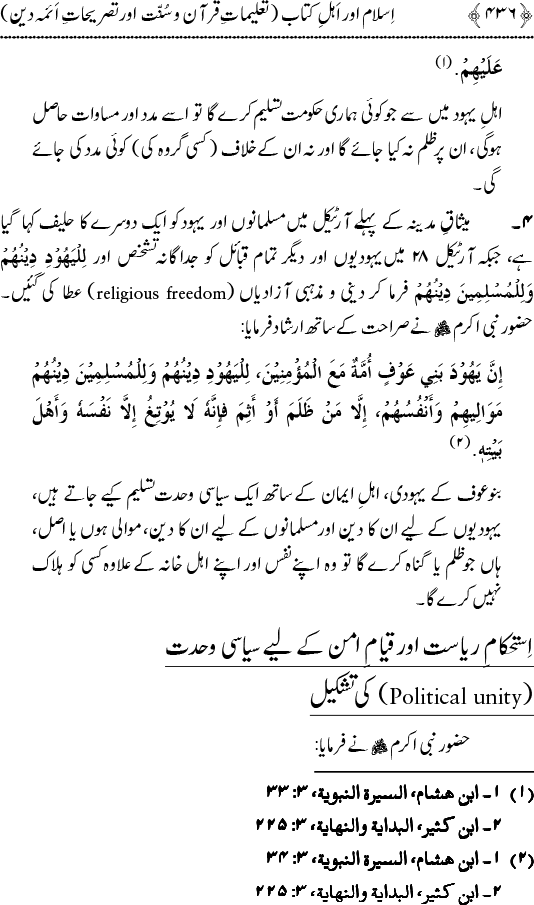 ﴿۴۳۶﴾ اِسلام اور اَہلِ کتاب (تعلیماتِ قرآن و سُنّت اور تصریحاتِ اَئمہ دین)
عَلَيْهِمْ. (۱)
اہلِ یہود میں سے جو کوئی ہماری حکومت تسلیم کرے گا تو اسے مدد اور مساوات حاصل
ہوگی، ان پر ظلم نہ کیا جائے گا اور نہ ان کے خلاف (کسی گروہ کی) کوئی مدد کی جائے
گی۔
۴۔ میثاقِ مدینہ کے پہلے آرٹیکل میں مسلمانوں اور یہود کو ایک دوسرے کا حلیف کہا گیا
ہے، جبکہ آرٹیکل ۲۸ میں یہودیوں اور دیگر تمام قبائل کو جداگانہ تشخص اور لِلْيَهُوْدِ دِيْنُهُمْ
وَلِلْمُسْلِمِيْنَ دِيْنُهُمْ فرما کر دینی و مذہبی آزادیاں (religious freedom) عطا کی گئیں۔
حضور نبی اکرم ﷺ نے صراحت کے ساتھ ارشاد فرمایا:
إِنَّ يَهُوْدَ بَنِي عَوْفٍ أُمَّةٌ مَعَ الْمُؤْمِنِيْنَ، لِلْيَهُوْدِ دِيْنُهُمْ وَلِلْمُسْلِمِيْنَ دِيْنُهُمْ
مَوَالِيهِمْ وَأَنْفُسُهُمْ، إِلَّا مَنْ ظَلَمَ أَوْ أَثِمَ فَإِنَّهُ لَا يُوْتِغُ إِلَّا نَفْسَهُ وَأَهْلَ
بَيْتِهِ. (۲)
بنو عوف کے یہودی، اہلِ ایمان کے ساتھ ایک سیاسی وحدت تسلیم کیے جاتے ہیں،
یہودیوں کے لیے ان کا دین اور مسلمانوں کے لیے ان کا دین، موالی ہوں یا اصل،
ہاں جو ظلم یا گناہ کرے گا تو وہ اپنے نفس اور اپنے اہل خانہ کے علاوہ کسی کو ہلاک
نہیں کرے گا۔
اِستحکامِ ریاست اور قیامِ امن کے لیے سیاسی وحدت
(Political unity) کی تشکیل
حضور نبی اکرم ﷺ نے فرمایا:
(۱) ۱۔ ابن هشام، السيرة النبوية، ۳: ۳۳
۲۔ ابن كثير، البداية والنهاية، ۳: ۲۲۵
(۲) ۱۔ ابن هشام، السيرة النبوية، ۳: ۳۴
۲۔ ابن كثير، البداية والنهاية، ۳: ۲۲۵